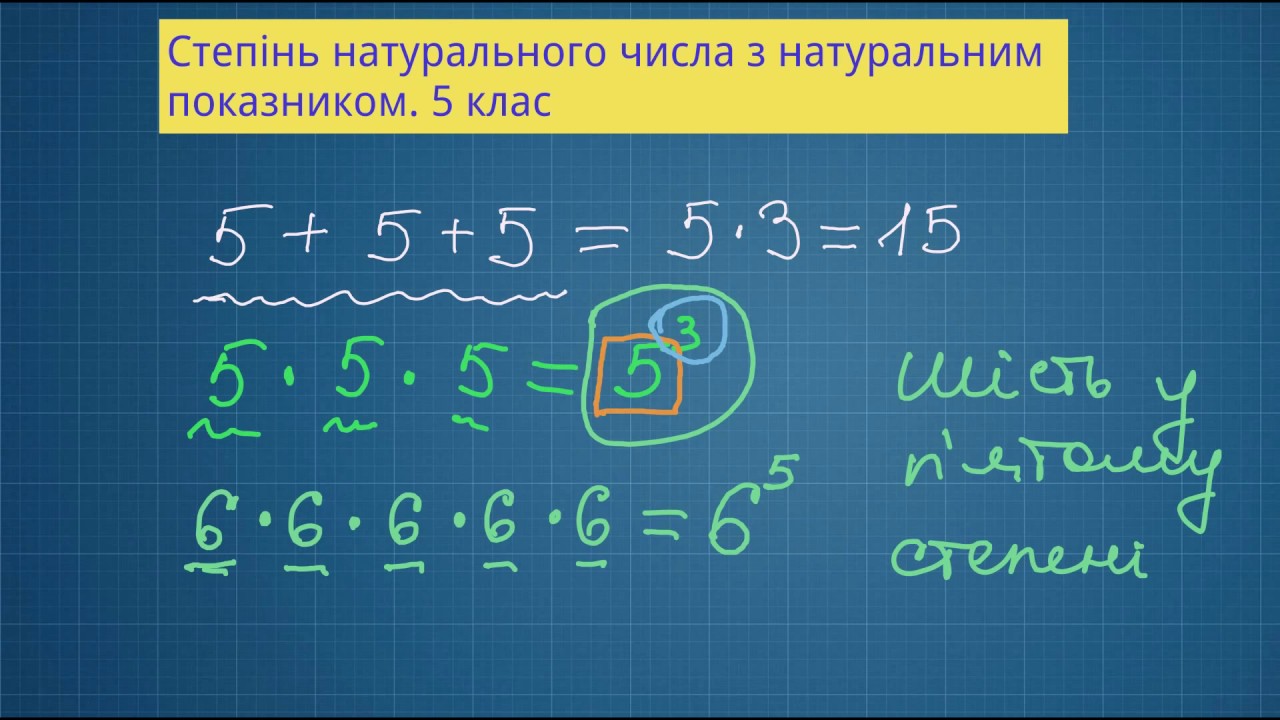 Степінь натурального числа з натуральним
показником. 5 клас
5 + 5 + 5 = 5 · 3 = 15
5 · 5 · 5 = 5³
6 · 6 · 6 · 6 · 6 = 6⁵
Шість у
п'ятому
степені